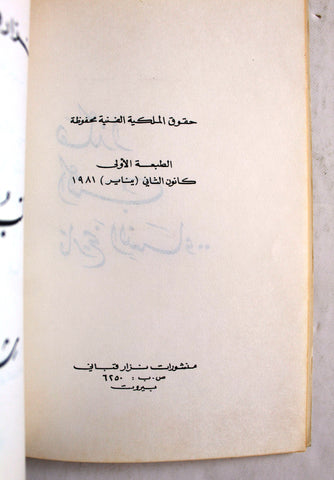 حقوق الملكية الفنية محفوظة
الطبعة الأولى
كانون الثاني (يناير) ١٩٨١
هكذا
أكتب
تاريخ النساء..
منشورات نزار قباني
ص.ب: ٦٢٥٠
بيروت